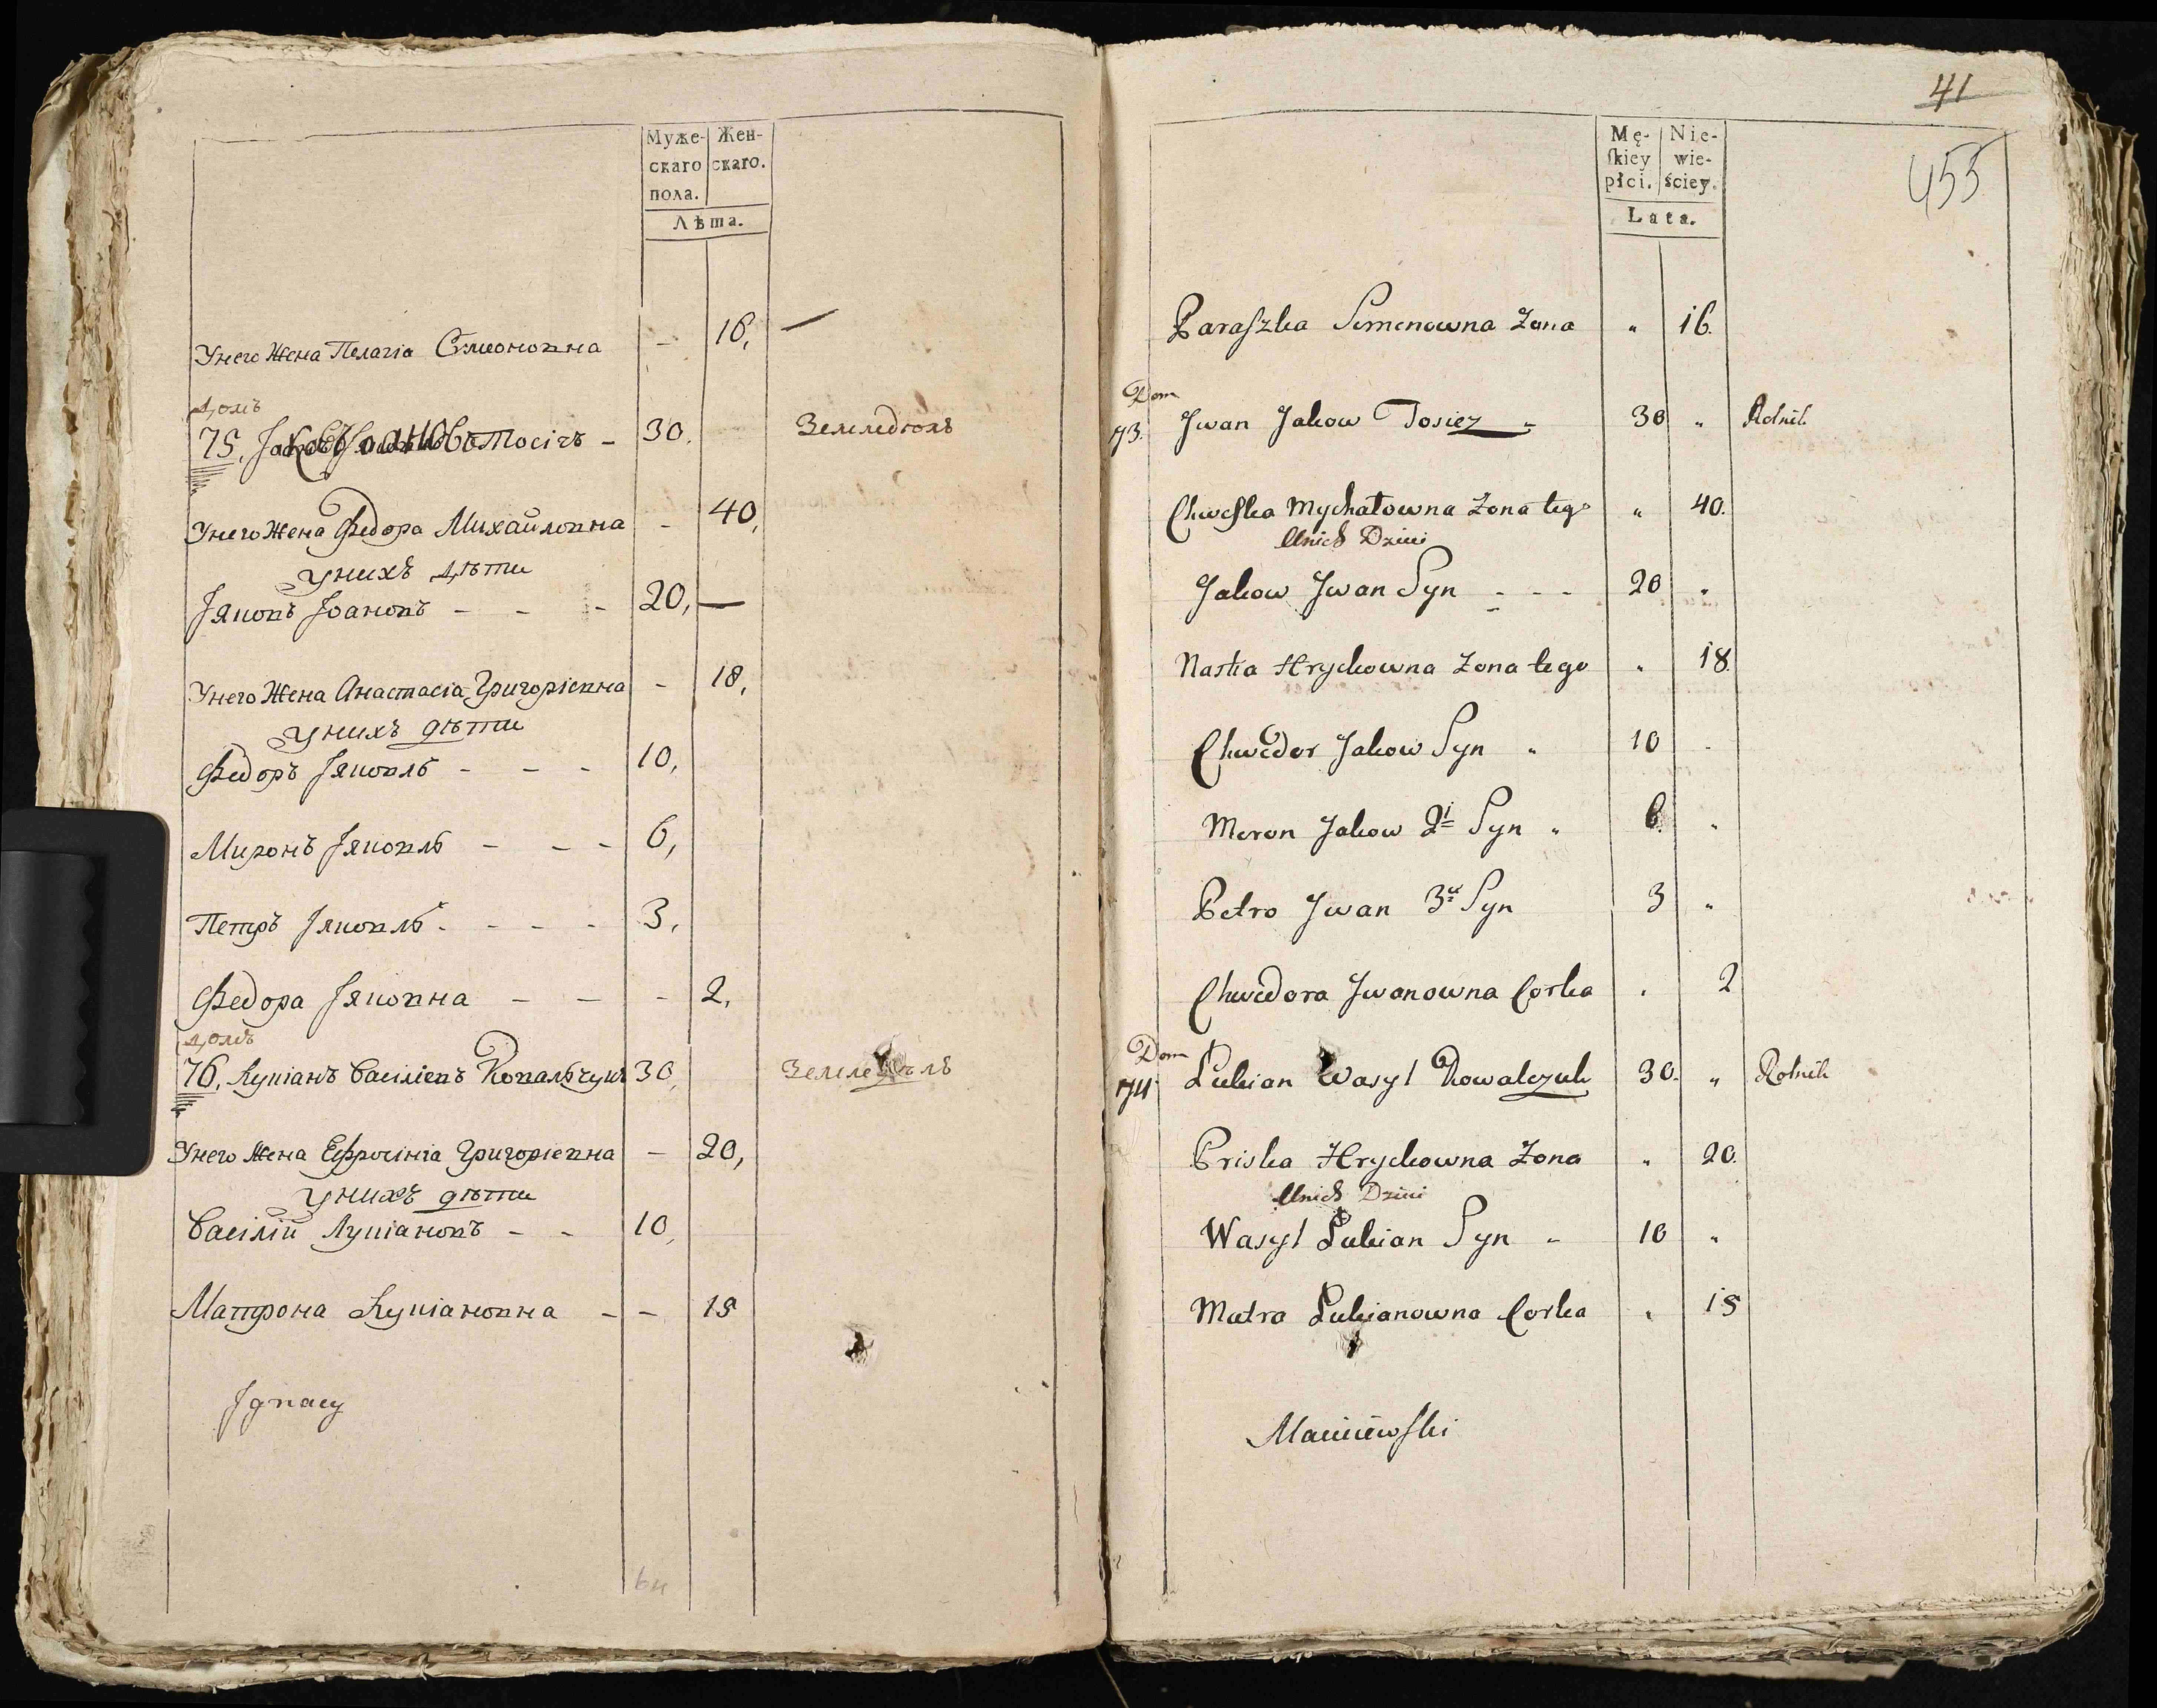 Муже-
скаго
пола.
Жен-
скаго.
Лѣта.
Унего Жена Пелагіа Сѵмеоновна – 16, —
домъ
75, Іоановъ Тосічъ – 30. Земледѣлъ
Унего Жена Федора Михайловна – 40,
Унихъ дѣти
Іяковъ Іоановъ – – – 20, —
Унего Жена Анастасіа Григоріевна – 18,
Унихъ дѣти
Федоръ Іяковль – – – 10,
Миронъ Іяковль – – – 6,
Петръ Іяковль – – – – 3,
Федора Іяковна – – – 2,
домъ
76, Лукіанъ Васіліевъ Ковальчукъ 30,
Унего Жена Ефросініа Григоріевна – 20,
Унихъ дѣти
Васілій Лукіановъ – – 10,
Матрона Лукіановна – – 15
Ignacy
64
41
453
Mę-
ſkiey
płci.
Nie-
wie-
ściey.
Lata.
Paraſzka Semenowna Zona " 16.
Dom
73. Jwan Jakow Tosicz " 30 " Rolnik
Chweſka Mychałowna Zona tego " 40.
Unich Dzieci
Jakow Jwan Syn - - - 20 "
Nastia Hryckowna Zona tego " 18.
Chwedor Jakow Syn " 10 -
Meron Jakow 2i Syn " 6. "
Petro Jwan 3 Syn 3 "
Chwedora Jwanowna Corka . 2
Dom
74 Lukian Wasyl Kowalczuk 30. " Rolnik
Priska Hryckowna Zona " 20.
Unich Dzieci
Wasyl Lukian Syn " 10 "
Matra Lukianowna Corka " 15
Maciiewſki